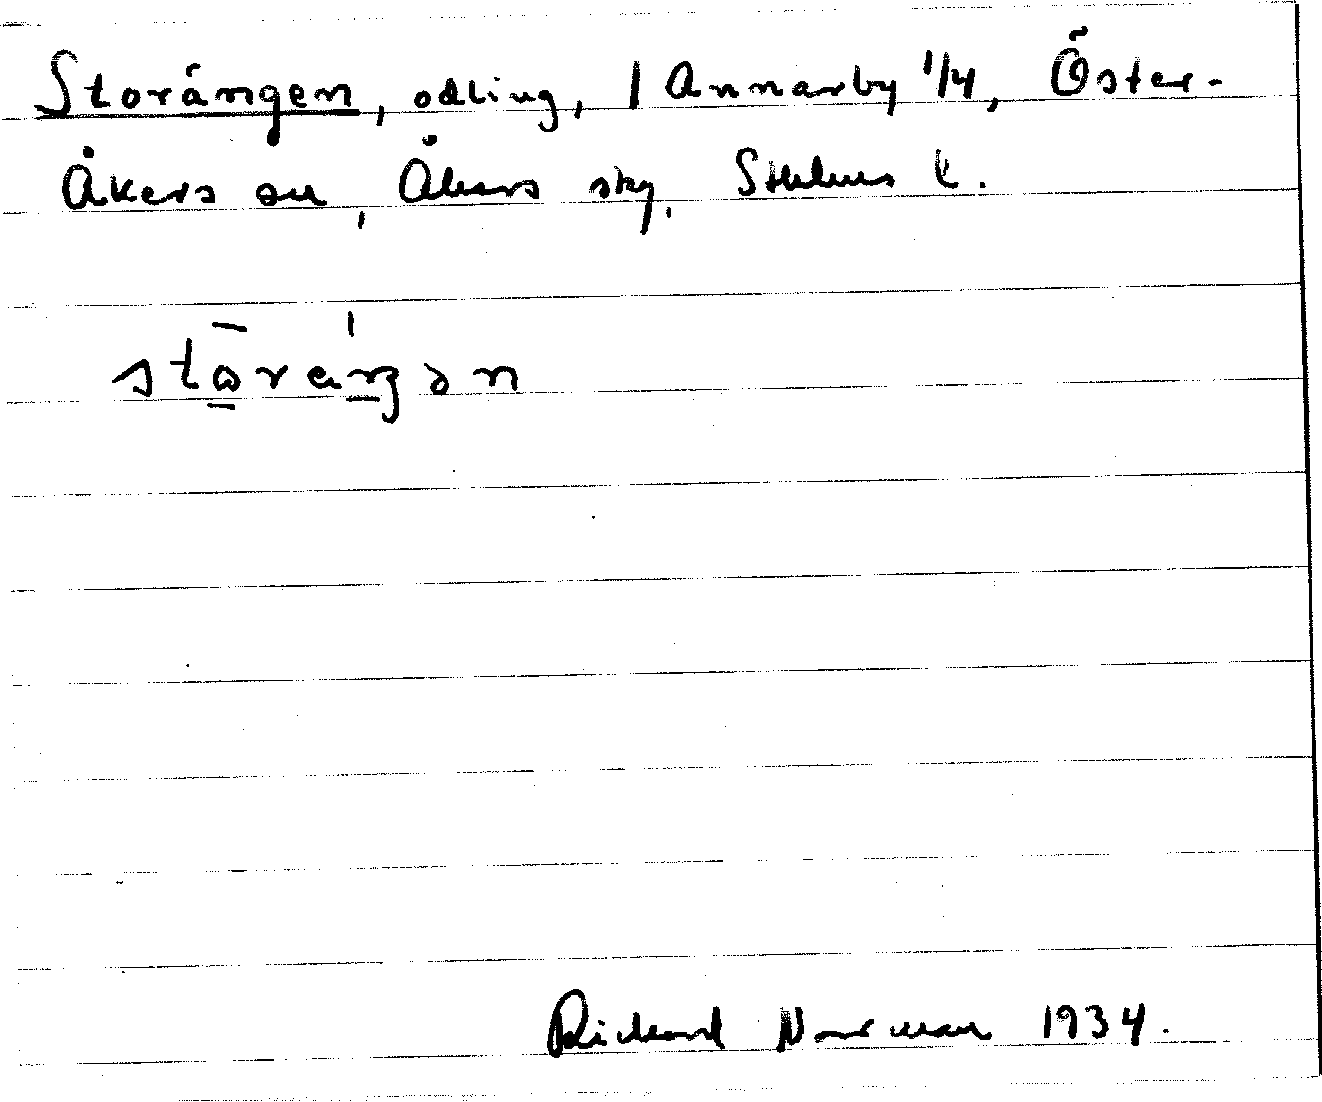 Storängen, odling, 1 Annarby 1/4, Öster-
Åkers sn, Åkers skg, Sthlms l.
Richard Norman 1934.